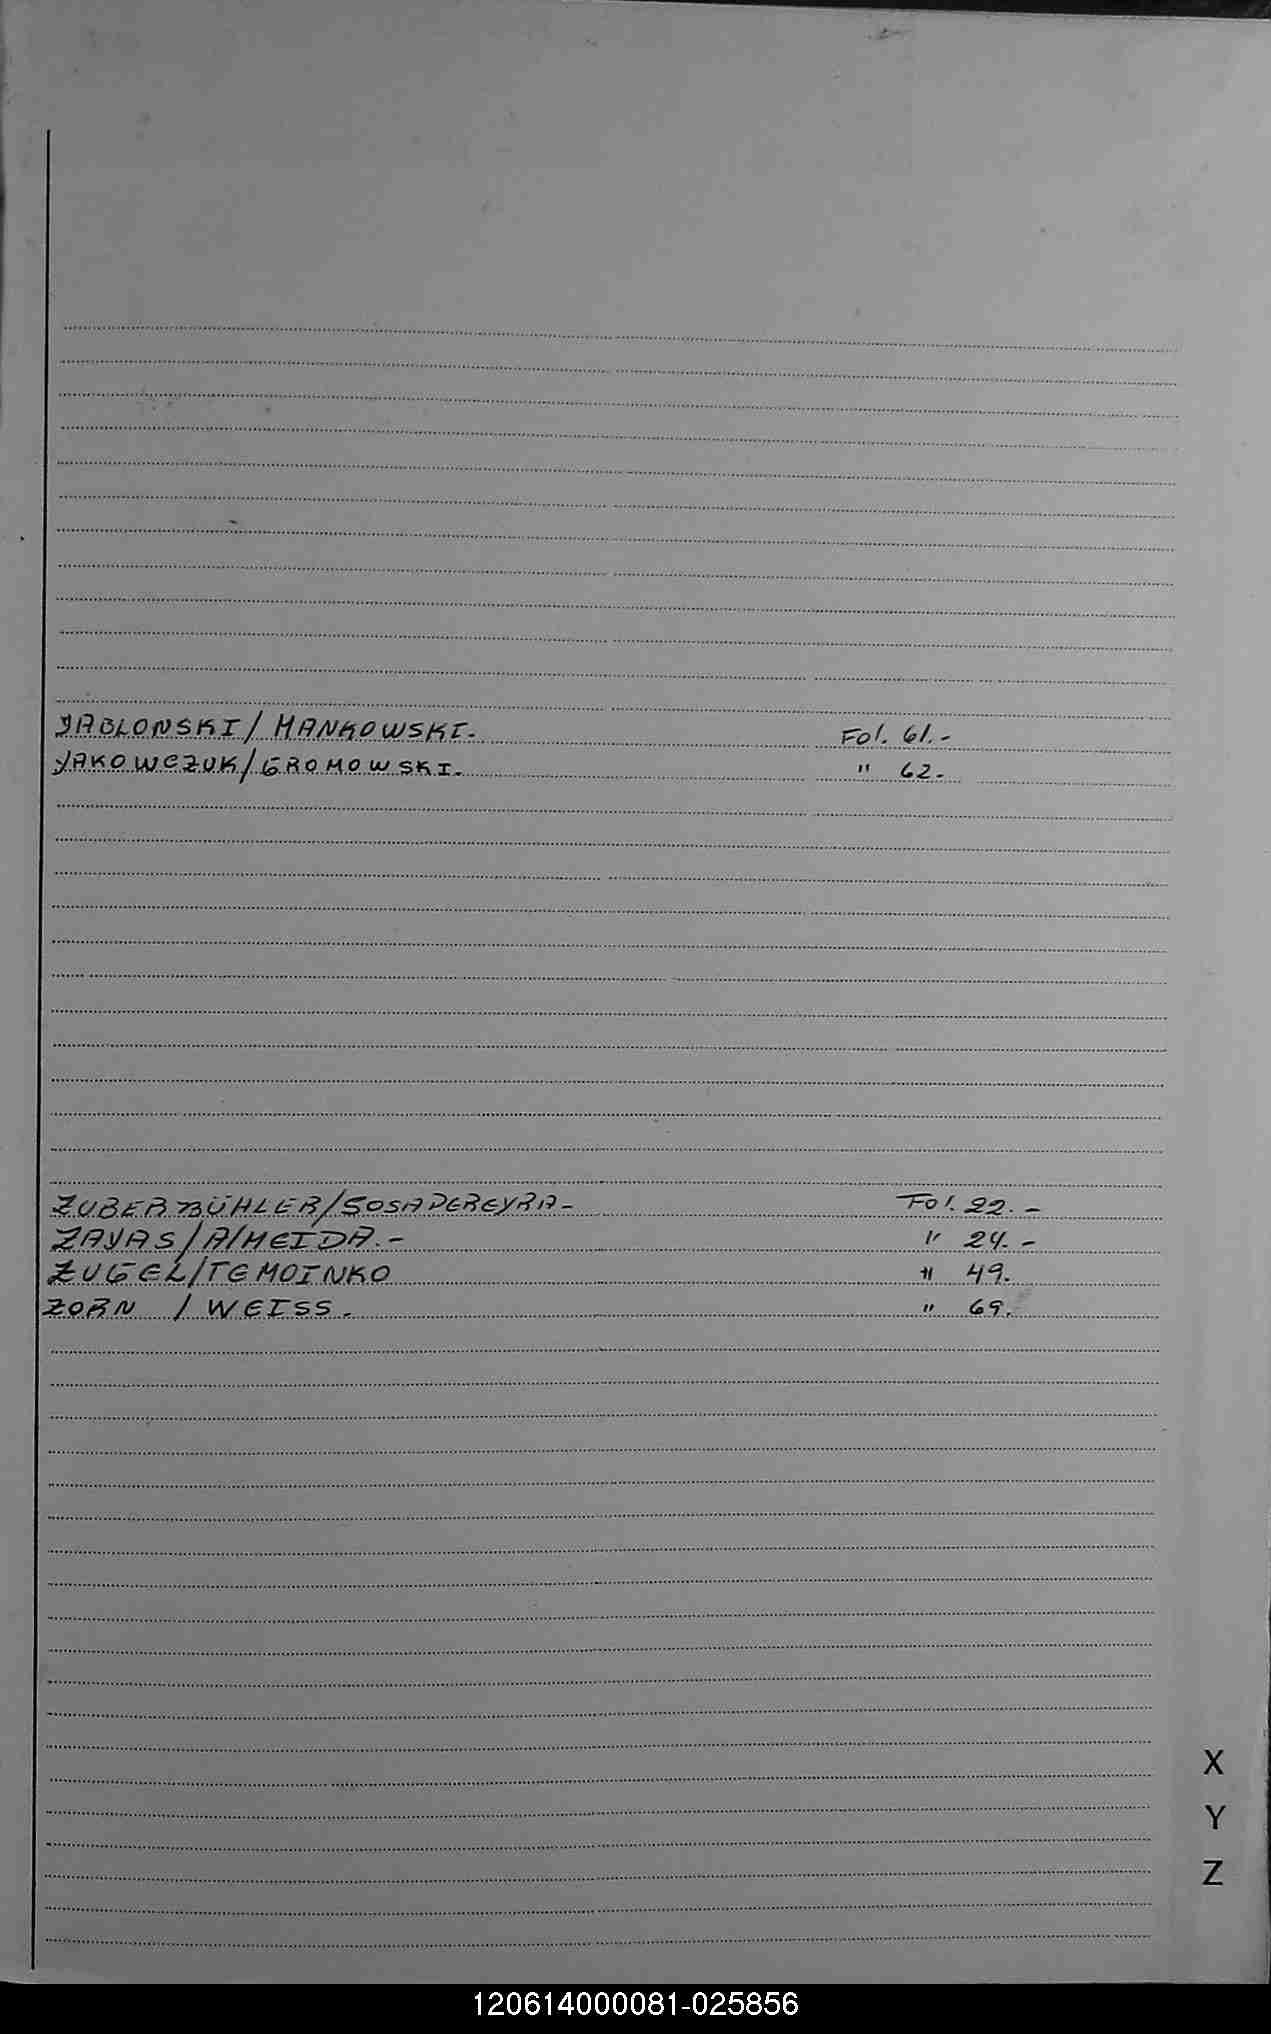 YABLONSKI / MANKOWSKI.- Fol. 61.-
YAKOWCZUK / GROMOWSKI. " 62.-
ZUBERBÜHLER / SOSA PEREYRA- Fol. 22.-
ZAYAS / AlMEIDA.- " 24.-
ZUGEL / TEMOINKO " 49.
ZORN / WEISS. " 69.
X
Y
Z
120614000081-025856